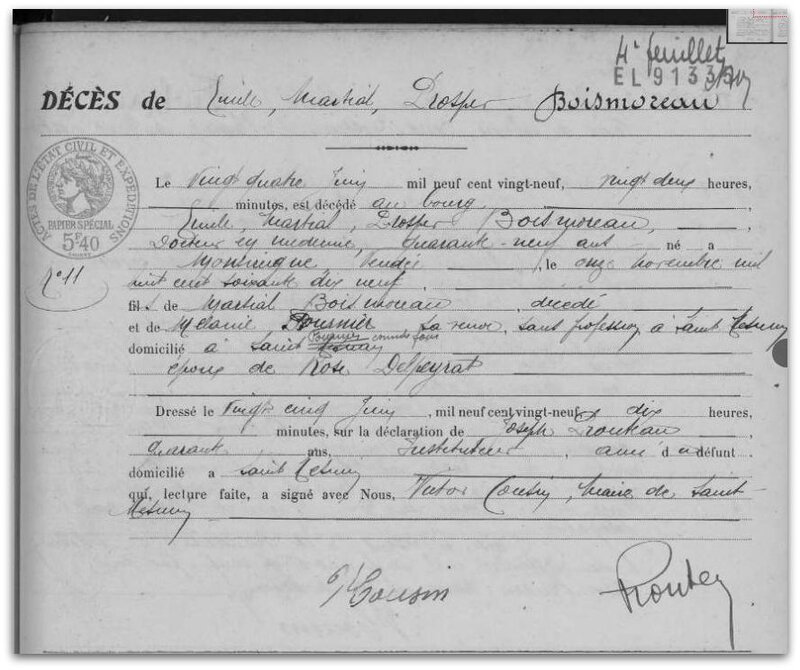 4e feuillet
EL 9133
DÉCÈS de Emile, Martial, Prosper Boismoreau
ACTES DE L'ÉTAT CIVIL ET EXPÉDITIONS
PAPIER SPÉCIAL
5F40
Le Vingt quatre Juin mil neuf cent vingt-neuf, vingt deux heures,
minutes, est décédé au bourg
Emile, Martial, Prosper Boismoreau,
Docteur en médecine, Quarante-neuf ans né a
Montaigne Vendée, le onze novembre mil
No 11
huit cent soixante dix neuf,
fils de Martial Boismoreau, décédé
et de Mélanie Fournier sa veuve, sans profession, à Saint Mesmin
domicilié à Saint
époux de Rose Delpeyrat
Dressé le Vingt cinq Juin, mil neuf cent vingt-neuf dix heures,
minutes, sur la déclaration de Joseph
quarante ans, Instituteur, ami du défunt
domicilié a saint Mesmin
qui, lecture faite, a signé avec Nous, Victor Cousin, Maire de Saint-
Mesmin
VCousin